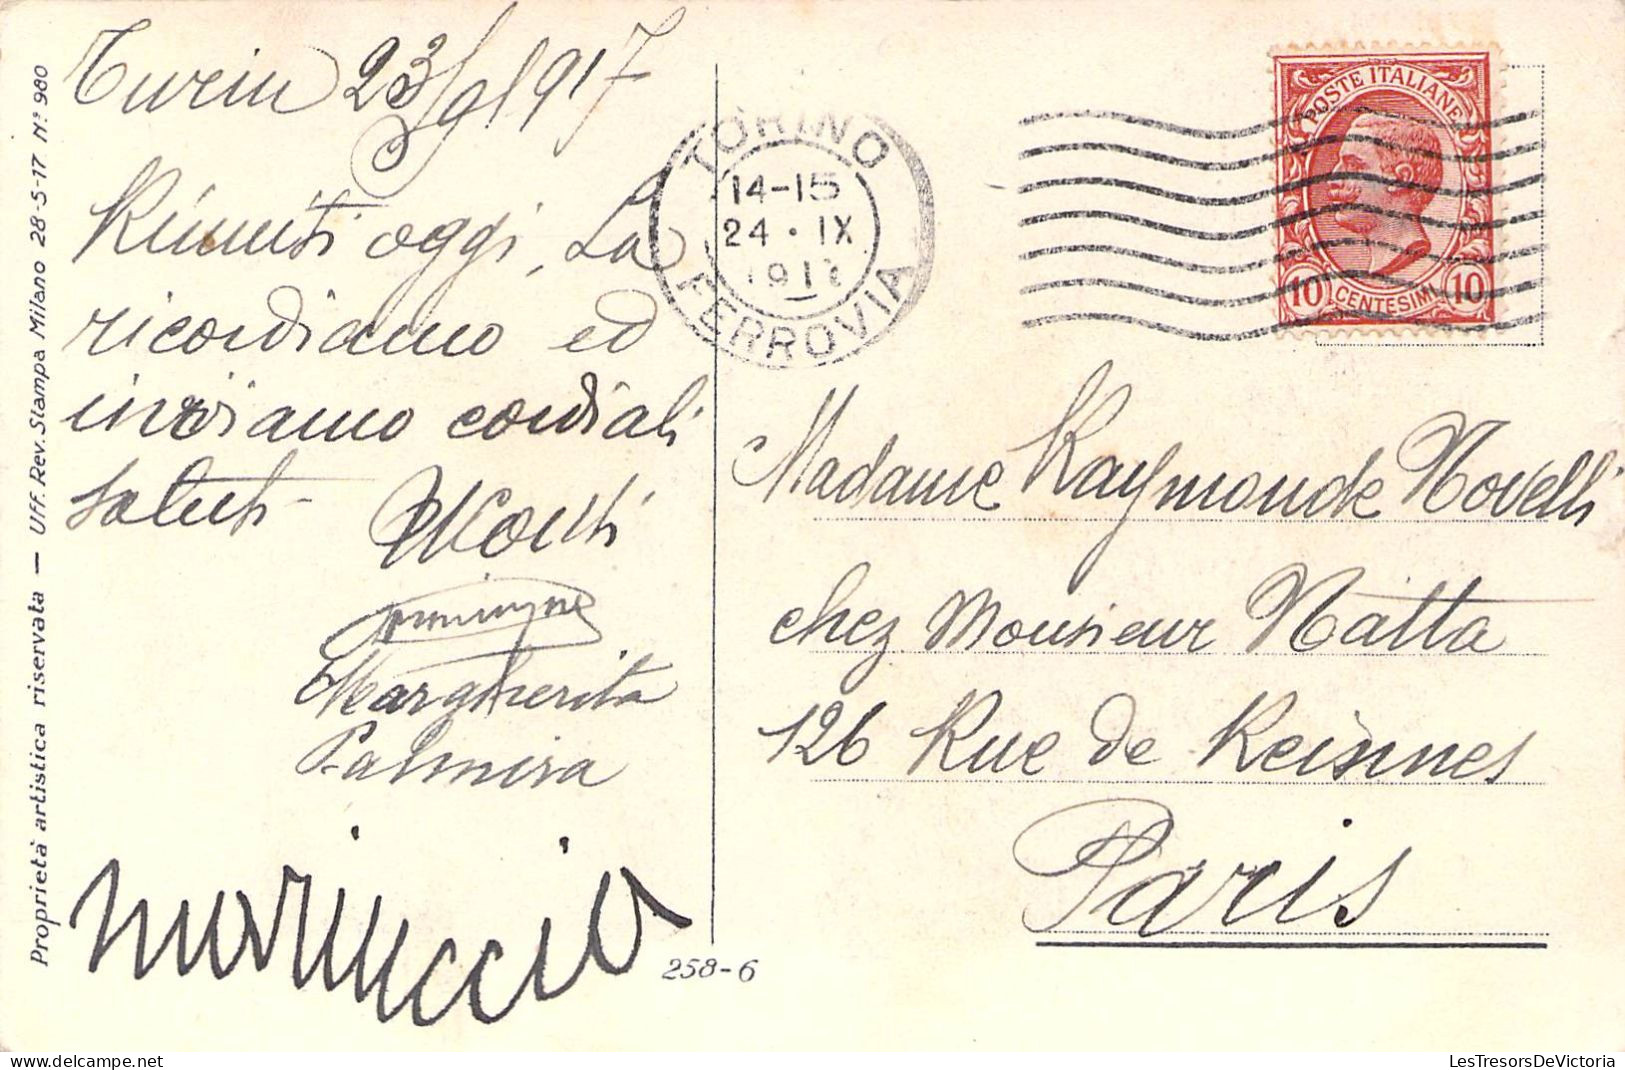 Proprietà artistica riservata — Uff. Rev. Stampa Milano 28-5-17 N° 980
Turin 23/9/917
Riuniti oggi, La
ricordiamo ed
inviamo cordiali
saluti
Margherita
Palmira
mariuccia
258-6
TORINO
14-15
24 · IX
FERROVIA
POSTE ITALIANE
10 CENTESIMI 10
Madame Raymonde Novelli
chez Monsieur Natta
126 Rue de Reinnes
Paris
LesTresorsDeVictoria